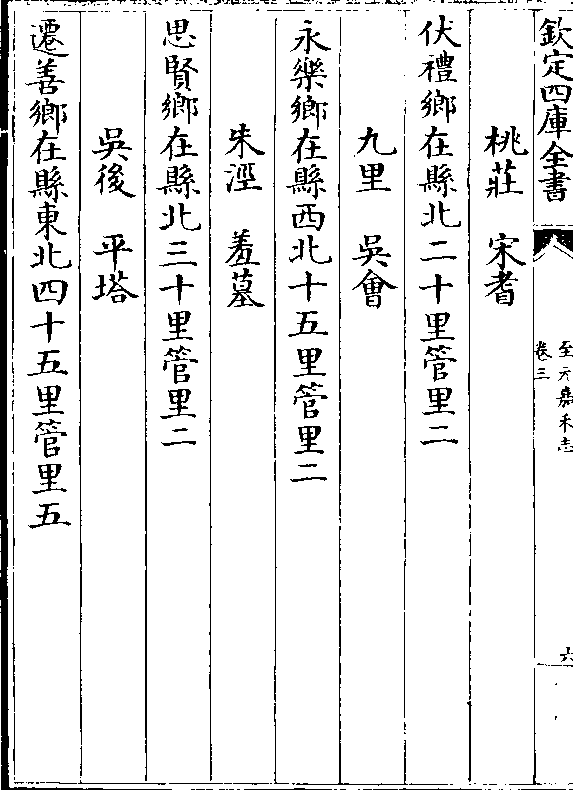 欽定四庫全書
至元嘉禾志
卷三
六
桃莊　宋耆
伏禮鄉在縣北二十里管里二
九里　吳會
永樂鄉在縣西北十五里管里二
朱涇　羞墓
思賢鄉在縣北三十里管里二
吳後　平塔
遷善鄉在縣東北四十五里管里五